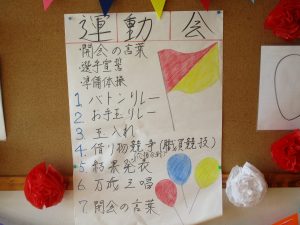 運動会
・開会の言葉
・選手宣誓
・準備体操
1. バトンリレー
2. お手玉リレー
3. 玉入れ
4. 借り物競争(職員競技)
5. 結果発表
6. 万歳三唱
7. 閉会の言葉